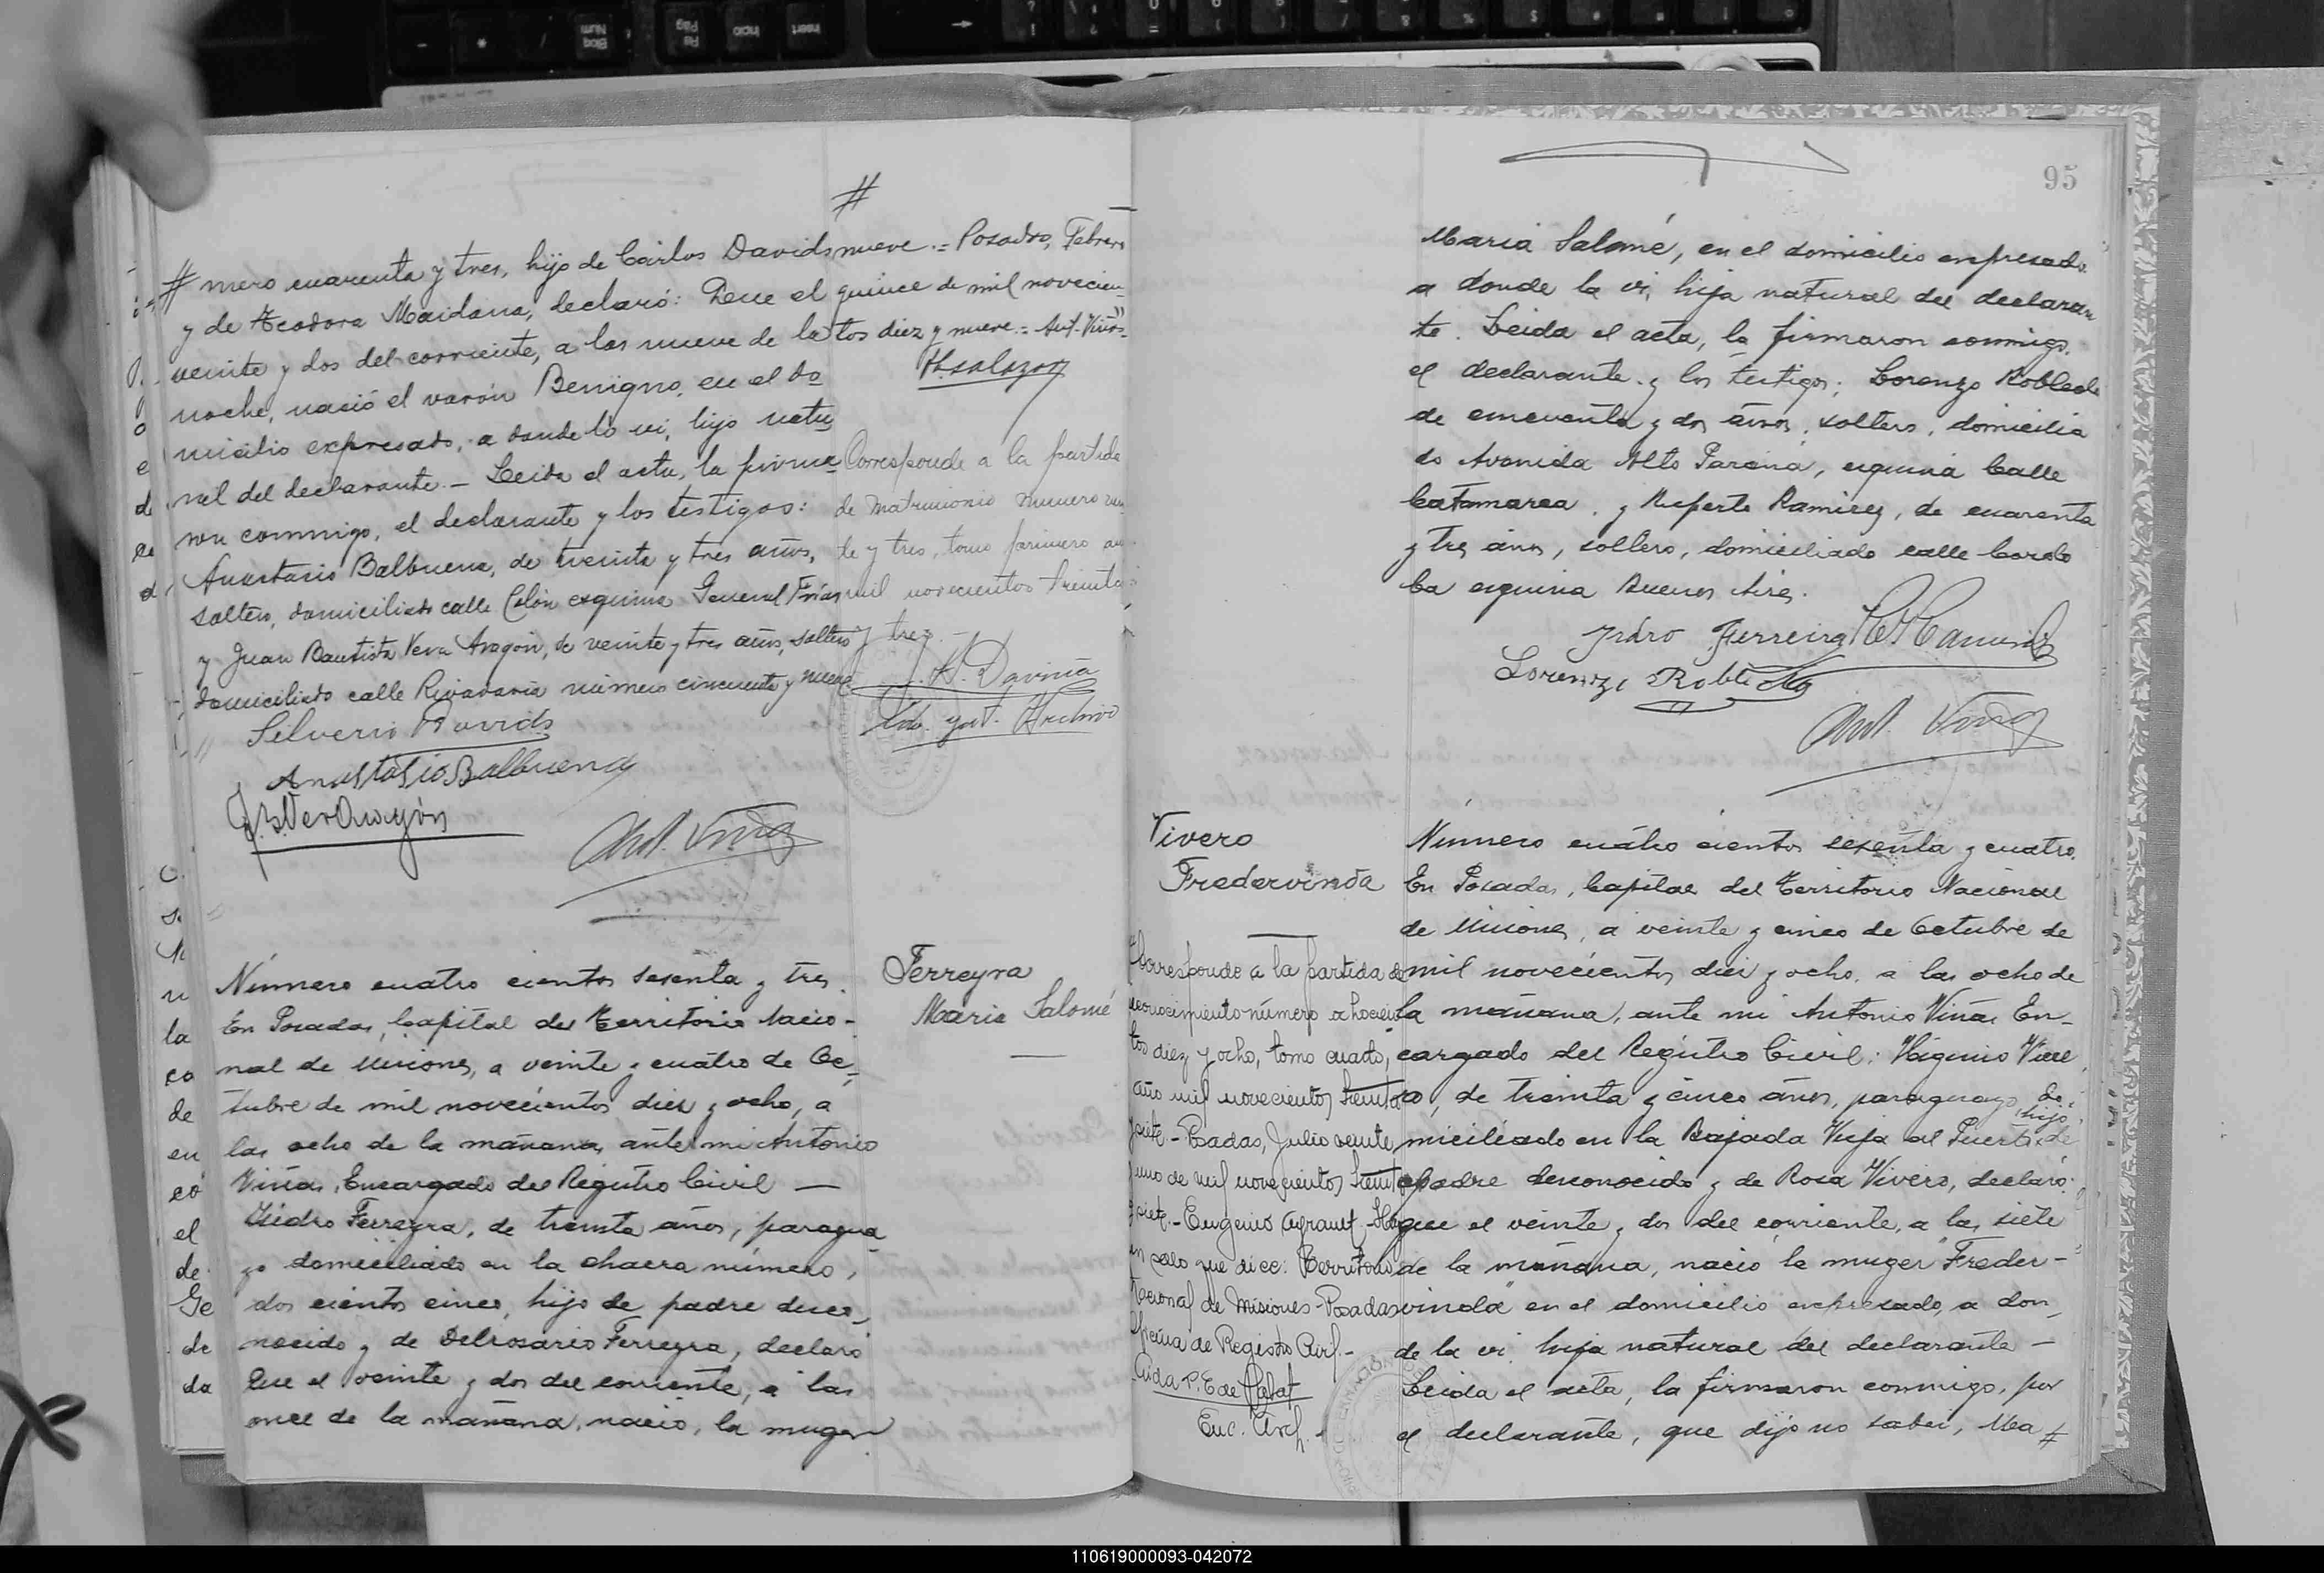 #
# mero cuarenta y tres, hijo de Cárlos Davids
y de Teodora Maidana, declaró: Que el
veinte y dos del corriente, a las nueve de la
noche, nació el varón Benigno, en el do
micilio expresado, a donde lo vi, hijo natu
ral del declarante.- Leida el acta, la firma
ron conmigo, el declarante y los testigos:
Anastasio Balbuena, de treinta y tres años,
soltero, domiciliado calle Colón esquina General Frías
y Juan Bautista Vera Aragón, de veinte y tres años, soltero
domiciliado calle Rivadavia número cincuenta y nueve
Silverio Davids
Anastasio Balbuena
J.B. Vera Aragón
Ant. Viña
nueve.= Posadas, Febrero
quince de mil novecien-
tos diez y nueve.= Ant. Viñas
Corresponde a la partida
de matrimonio número vein
te y tres, tomo primero año
mil novecientos treinta
y tres.-
Davina
Archivo
Número cuatro cientos sesenta y tres.
En Posadas, Capital del Territorio Nacio-
nal de Misiones, a veinte y cuatro de Oc-
tubre de mil novecientos diez y ocho, a
las ocho de la mañana, ante mi Antonio
Viñas, Encargado del Registro Civil —
Isidro Ferreyra, de treinta años, paragua
yo domiciliado en la chacra número,
dos cientos cinco, hijo de padre desco-
nocido y de Delrosario Ferreyra, declaró
Que el veinte y dos del corriente, a las
once de la mañana, nació, la muger
Ferreyra
Maria Salomé
95
Maria Salomé, en el domicilio expresado.
a donde la vi, hija natural del declaran
te. Leida el acta, la firmaron conmigo,
el declarante y los testigos; Lorenzo Robledo
de cincuenta y dos años, soltero, domicilia
do Avenida Alto Parana, esquina Calle
Catamarca, y Ruperto Ramirez, de cuarenta
y tres años, soltero, domiciliado calle Cordo
ba esquina Buenos Aires.
Isidro Ferreira R Ramirez
Lorenzo Robledo
Ant. Viña
Vivero
Fredervinda
Corresponde a la partida de
reconocimiento número ochocien
tos diez y ocho, tomo cuarto,
año mil novecientos treinta
y siete.- Posadas, Julio veinte
y uno de mil novecientos treinta
y siete.- Eugenio Hay
un sello que dice: Territorio
Nacional de Misiones - Posadas
Oficina de Registro Civil.-
Aida P. E de
Enc. Arch.-
Número cuatro cientos sesenta y cuatro.
En Posadas, Capital del Territorio Nacional
de Misiones, a veinte y cinco de Octubre de
mil novecientos diez y ocho, a las ocho de
la mañana, ante mi Antonio Viñas En-
cargado del Registro Civil: Higinio Vive
ro, de treinta y cinco años, paraguayo, do-
miciliado en la Bajada Vieja al Puerto, hijo de
padre desconocido y de Rosa Vivero, declaró:
que el veinte y dos del corriente, a las siete
de la mañana, nació la muger "Freder-
vinda" en el domicilio expresado, a don
de la vi hija natural del declarante —
Leida el acta, la firmaron conmigo, por
el declarante, que dijo no saber, Mea #
110619000093-042072